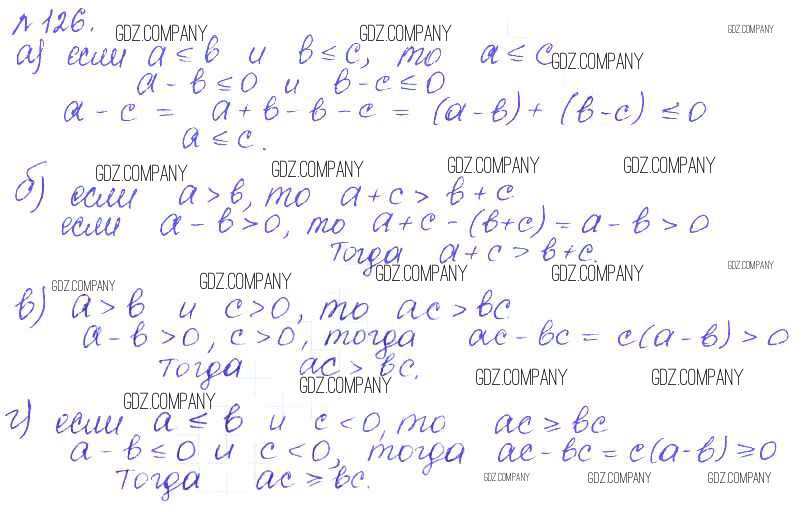 № 126.
GDZ.COMPANY GDZ.COMPANY GDZ.COMPANY
а) если a ≤ b и b ≤ c, то a ≤ c
GDZ.COMPANY
a - b ≤ 0 и b - c ≤ 0
a - c = a + b - b - c = (a - b) + (b - c) ≤ 0
a ≤ c.
GDZ.COMPANY GDZ.COMPANY GDZ.COMPANY GDZ.COMPANY
б) если a > b, то a + c > b + c
если a - b > 0, то a + c - (b + c) = a - b > 0
Тогда a + c > b + c.
GDZ.COMPANY GDZ.COMPANY GDZ.COMPANY GDZ.COMPANY GDZ.COMPANY
в) a > b и c > 0, то ac > bc
a - b > 0, c > 0, тогда ac - bc = c(a - b) > 0
Тогда ac > bc.
GDZ.COMPANY GDZ.COMPANY GDZ.COMPANY GDZ.COMPANY
г) если a ≤ b и c < 0, то ac ≥ bc
a - b ≤ 0 и c < 0, тогда ac - bc = c(a - b) ≥ 0
Тогда ac ≥ bc.
GDZ.COMPANY GDZ.COMPANY GDZ.COMPANY